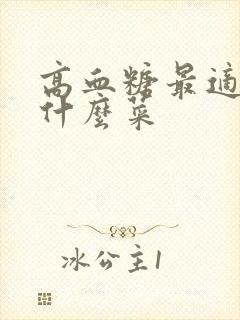 高血糖最適
什麼菜
冰公主1